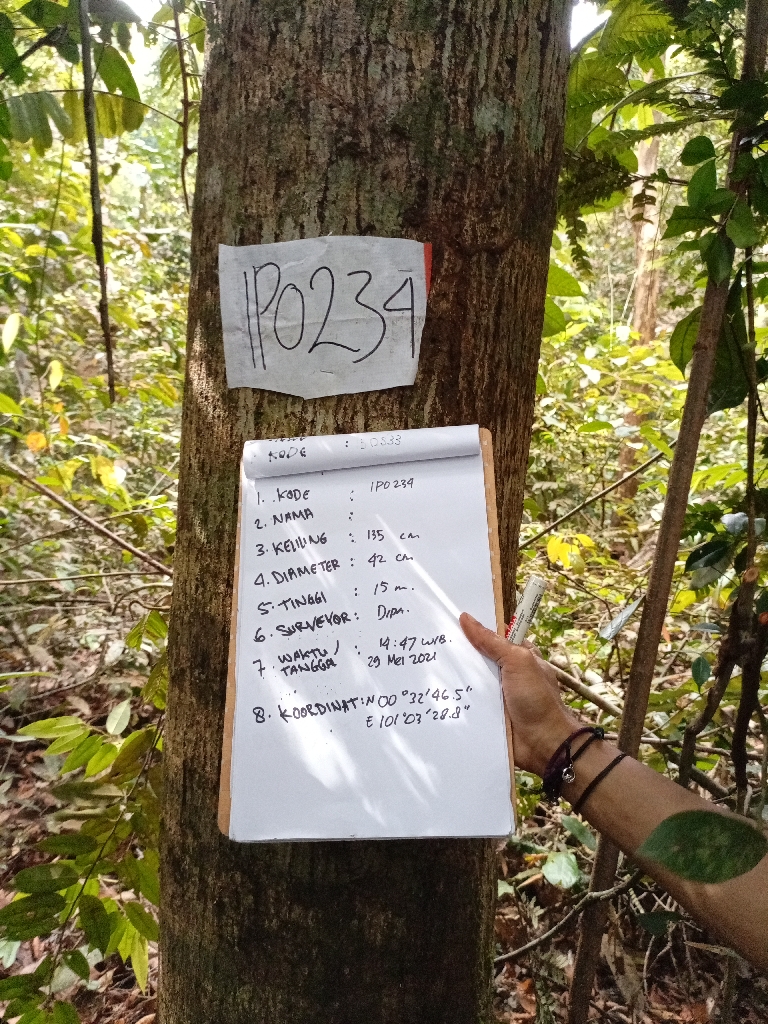 IPO234
KODE :
1. KODE : IPO234
2. NAMA :
3. KELILING : 135 cm
4. DIAMETER : 42 cm
5. TINGGI : 15 m.
6. SURVEYOR : DIPA.
7. WAKTU / : 14:47 WIB.
TANGGA 29 MEI 2021
8. KOORDINAT : N 00°32'46.5"
E 101°03'28.8"